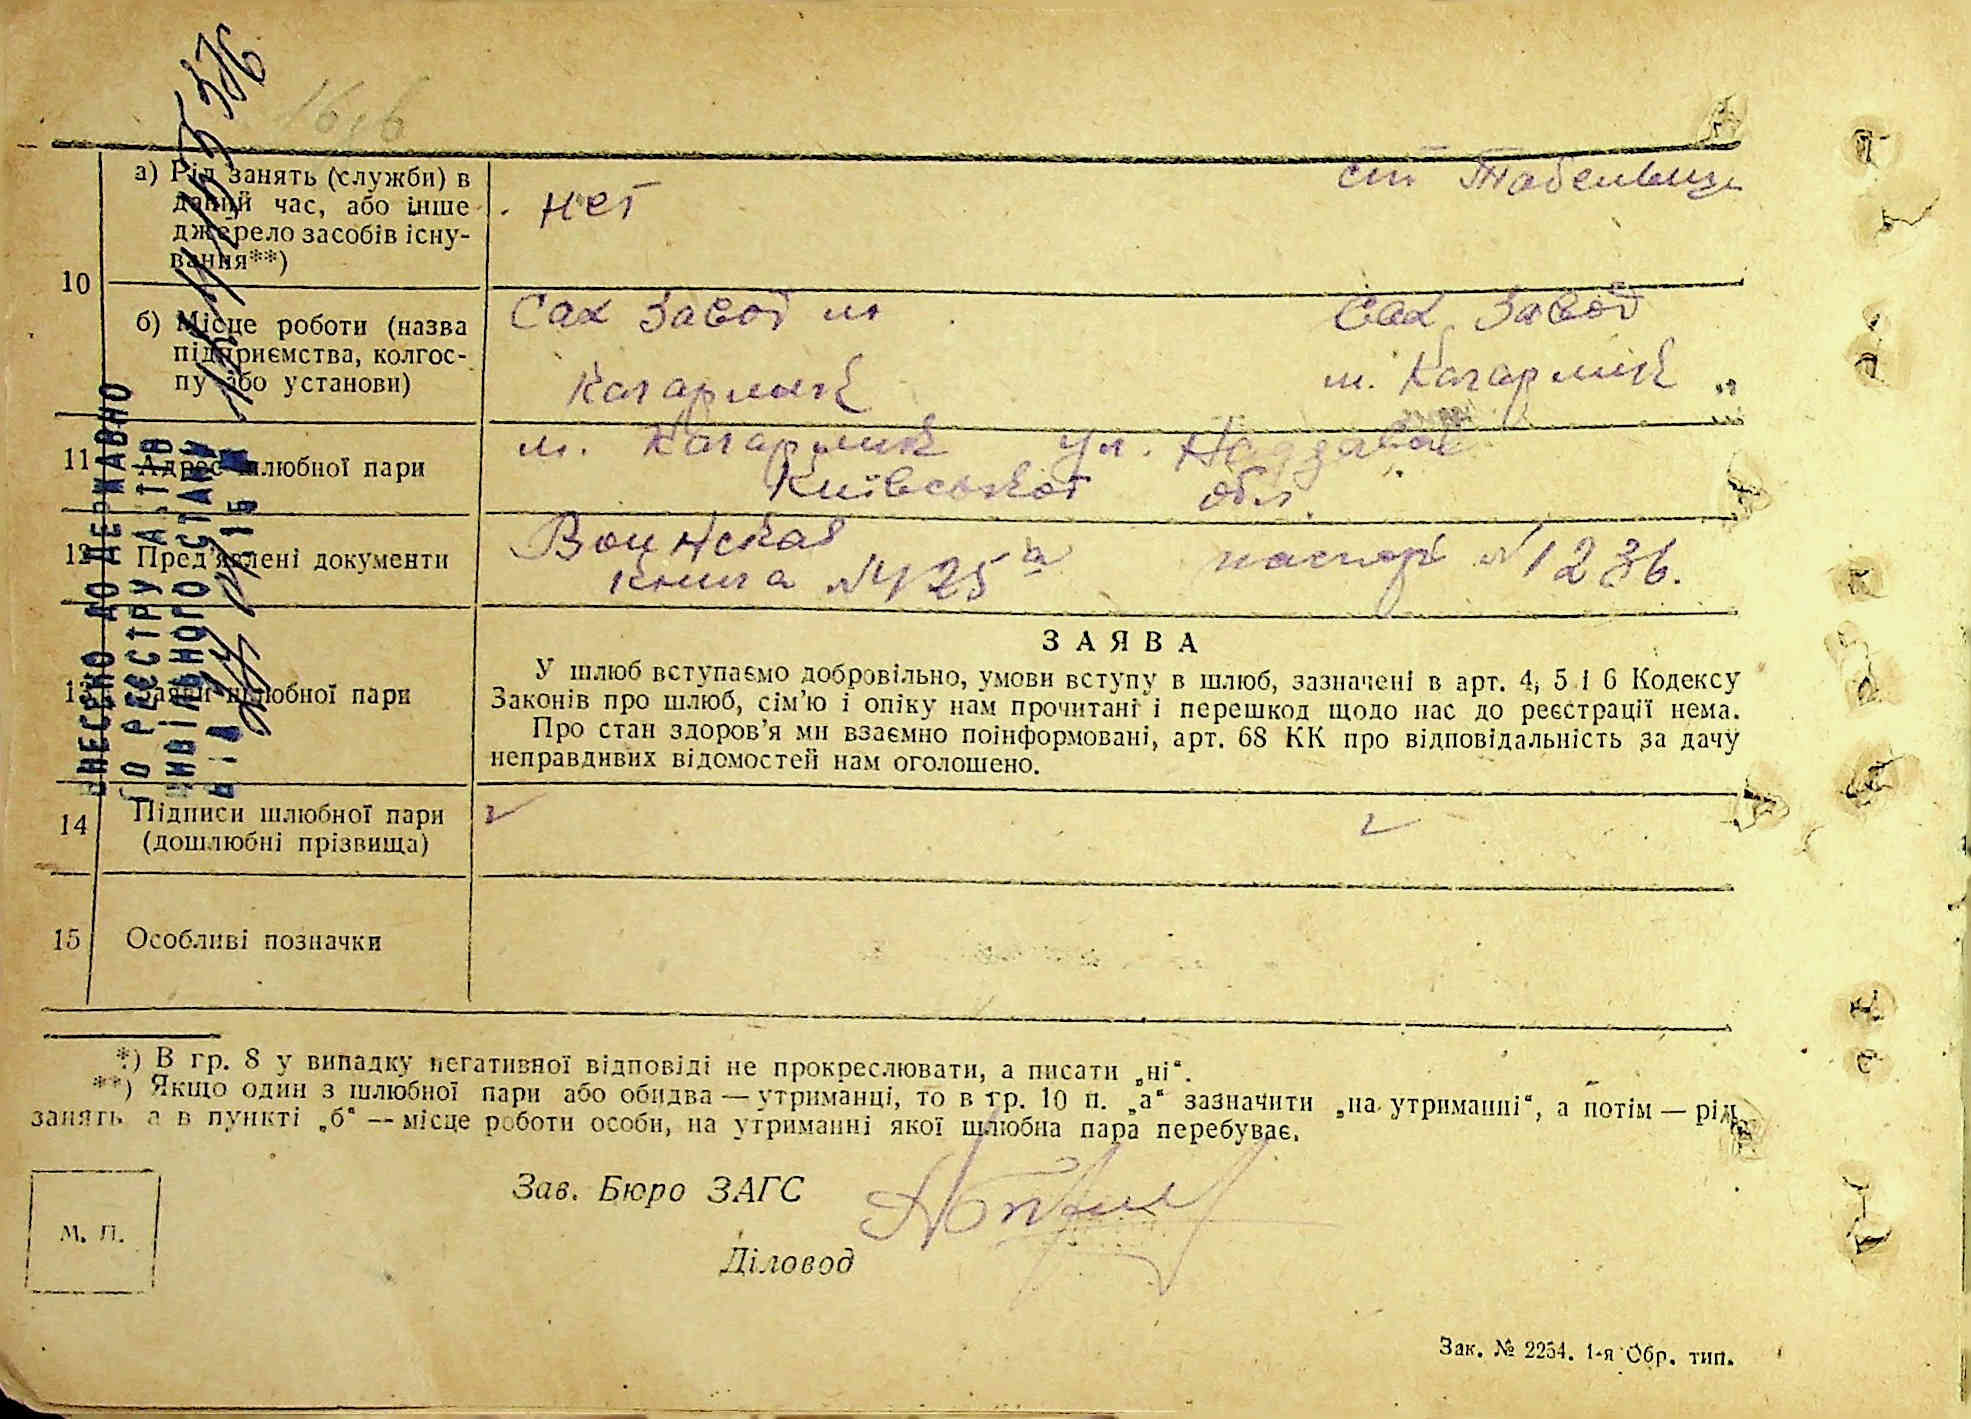 16,6
а) Рід занять (служби) в
даний час, або інше
джерело засобів існу-
вання**)
нет
ст Табельщ
10
б) Місце роботи (назва
підприємства, колгос-
пу або установи)
Сах завод м
Кагарлик
Сах завод
м. Кагарлик
11 Адрес шлюбної пари
м. Кагарлик ул.
Київської обл.
12 Пред'явлені документи
Воинская
книга № 425 а
паспорт № 1236.
13 Заяви шлюбної пари
ЗАЯВА
У шлюб вступаємо добровільно, умови вступу в шлюб, зазначені в арт. 4, 5 і 6 Кодексу
Законів про шлюб, сім'ю і опіку нам прочитані і перешкод щодо нас до реєстрації нема.
Про стан здоров'я ми взаємно поінформовані, арт. 68 КК про відповідальність за дачу
неправдивих відомостей нам оголошено.
14 Підписи шлюбної пари
(дошлюбні прізвища)
15 Особливі позначки
*) В гр. 8 у випадку негативної відповіді не прокреслювати, а писати „ні“.
**) Якщо один з шлюбної пари або обидва — утриманці, то в гр. 10 п. „а“ зазначити „на утриманні“, а потім — рід
занять а в пункті „б“ — місце роботи особи, на утриманні якої шлюбна пара перебуває.
Зав. Бюро ЗАГС
Діловод
М. П.
Зак. № 2254. 1-я Обр. тип.
ВНЕСЕНО ДО ДЕРЖАВНО
ГО РЕЄСТРУ АКТІВ
ЦИВІЛЬНОГО СТАНУ